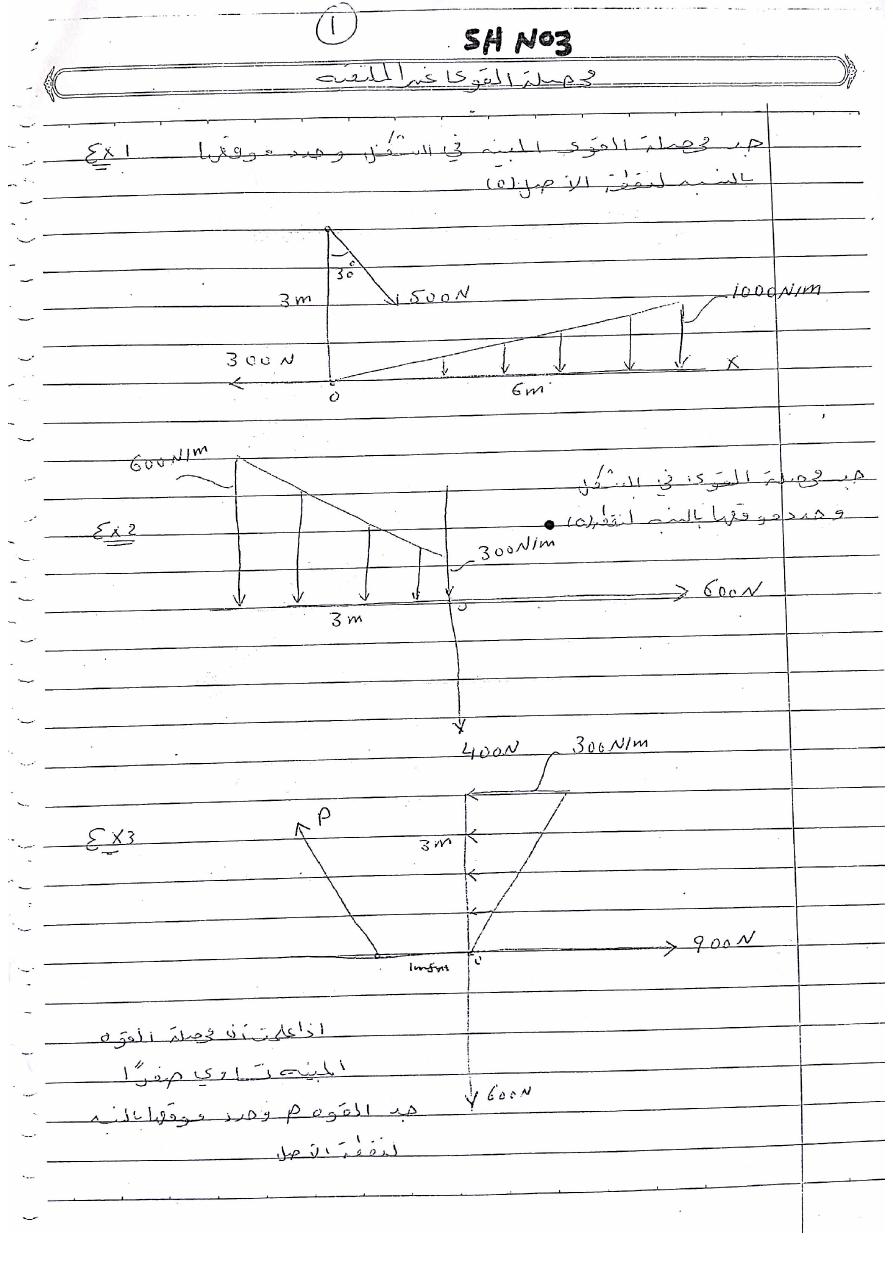 1
SH NO3
محصلة القوى غير الملتقيه
Ex1 جد محصلة القوى المبينه في الشكل وحدد موقعها
بالنسبه لنقطة الاصل (o)
30°
3m
1500N
1000N/m
300N
X
o
6m
600N/m
جد محصلة القوى في الشكل
Ex2 وحدد موقعها بالنسبه لنقطة (o)
300N/m
600N
o
3m
400N
300N/m
Ex3
P
3m
900N
o
600N
اذا علمت ان محصلة القوه
المبينه تساوي صفراً
جد القوه P وحدد موقعها بالنسبه
لنقطة الاصل